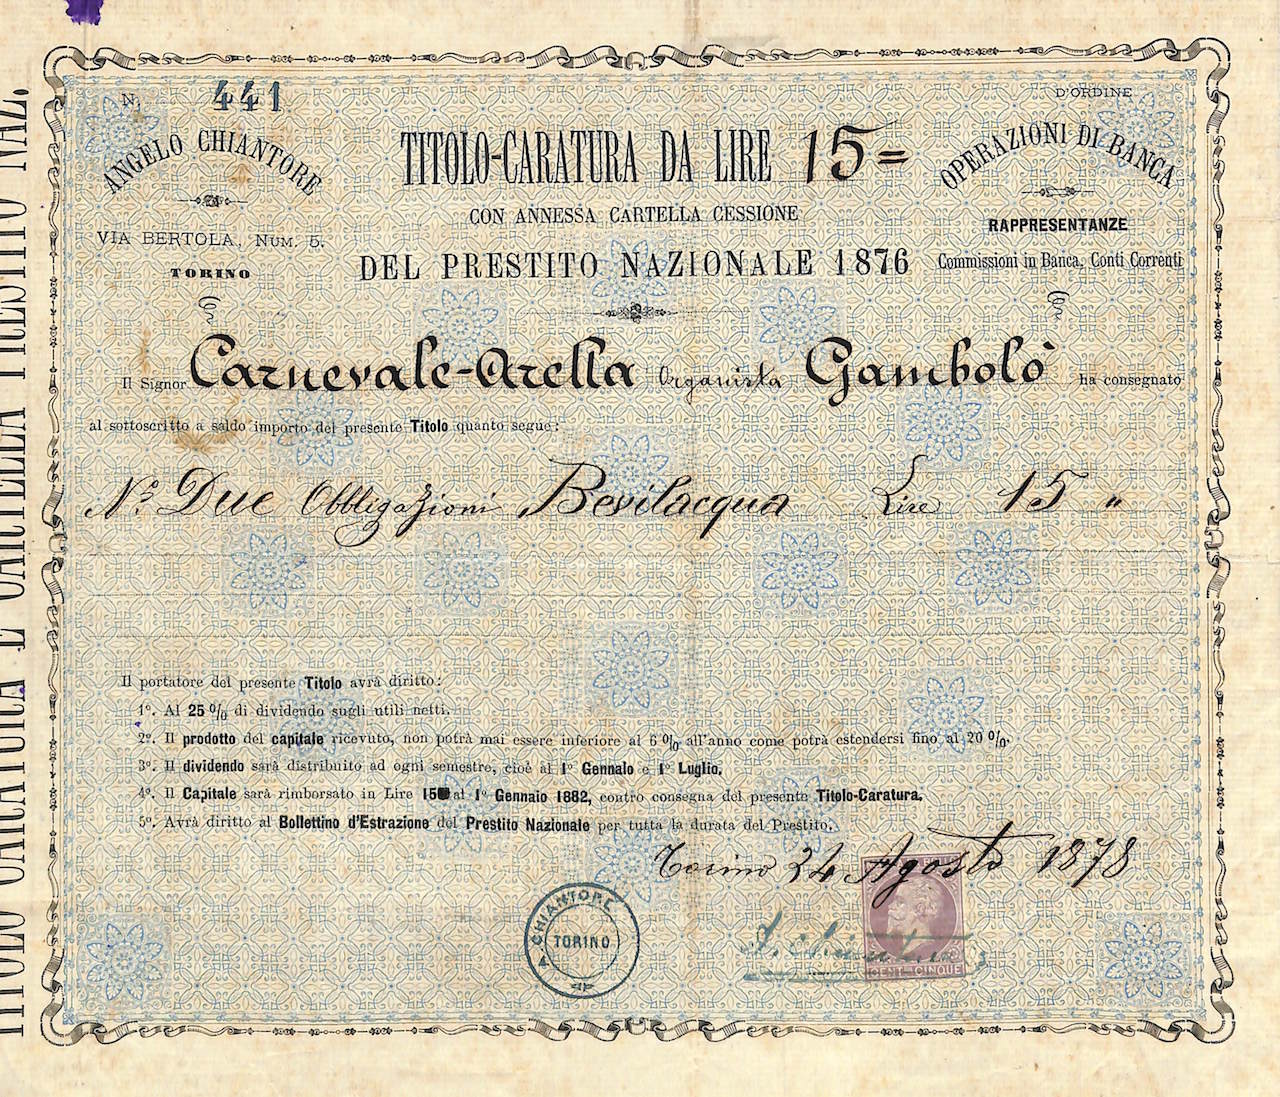 N. 441
D'ORDINE
ANGELO CHIANTORE
VIA BERTOLA, NUM. 5.
TORINO
TITOLO-CARATURA DA LIRE 15=
CON ANNESSA CARTELLA CESSIONE
DEL PRESTITO NAZIONALE 1876
OPERAZIONI DI BANCA
RAPPRESENTANZE
Commissioni in Banca, Conti Correnti
Il Signor Carnevale-Arella Organista Gambolò ha consegnato
al sottoscritto a saldo importo del presente Titolo quanto segue:
N.° Due Obbligazioni Bevilacqua Lire 15 "
Il portatore del presente Titolo avrà diritto:
1°. Al 25 % di dividendo sugli utili netti.
2°. Il prodotto del capitale ricevuto, non potrà mai essere inferiore al 6 % all'anno come potrà estendersi fino al 20 %.
3°. Il dividendo sarà distribuito ad ogni semestre, cioè al 1° Gennaio e 1° Luglio.
4°. Il Capitale sarà rimborsato in Lire 15 al 1° Gennaio 1882, contro consegna del presente Titolo-Caratura.
5°. Avrà diritto al Bollettino d'Estrazione del Prestito Nazionale per tutta la durata del Prestito.
Torino 24 Agosto 1878
A. CHIANTORE
TORINO
A. Chiantore
CENT. CINQUE
TITOLO CARATURA E CARTELLA PRESTITO NAZ.